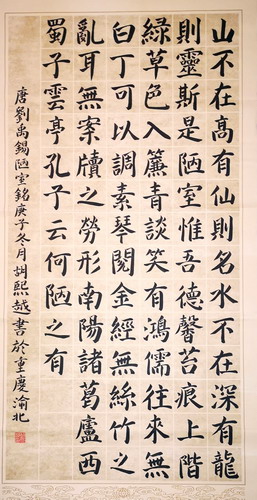 山不在高有仙則名水不在深有龍
則靈斯是陋室惟吾德馨苔痕上階
綠草色入簾青談笑有鴻儒往來無
白丁可以調素琴閱金經無絲竹之
亂耳無案牘之勞形南陽諸葛廬西
蜀子雲亭孔子云何陋之有
唐劉禹錫陋室銘庚子冬月胡熙越書於重慶渝北